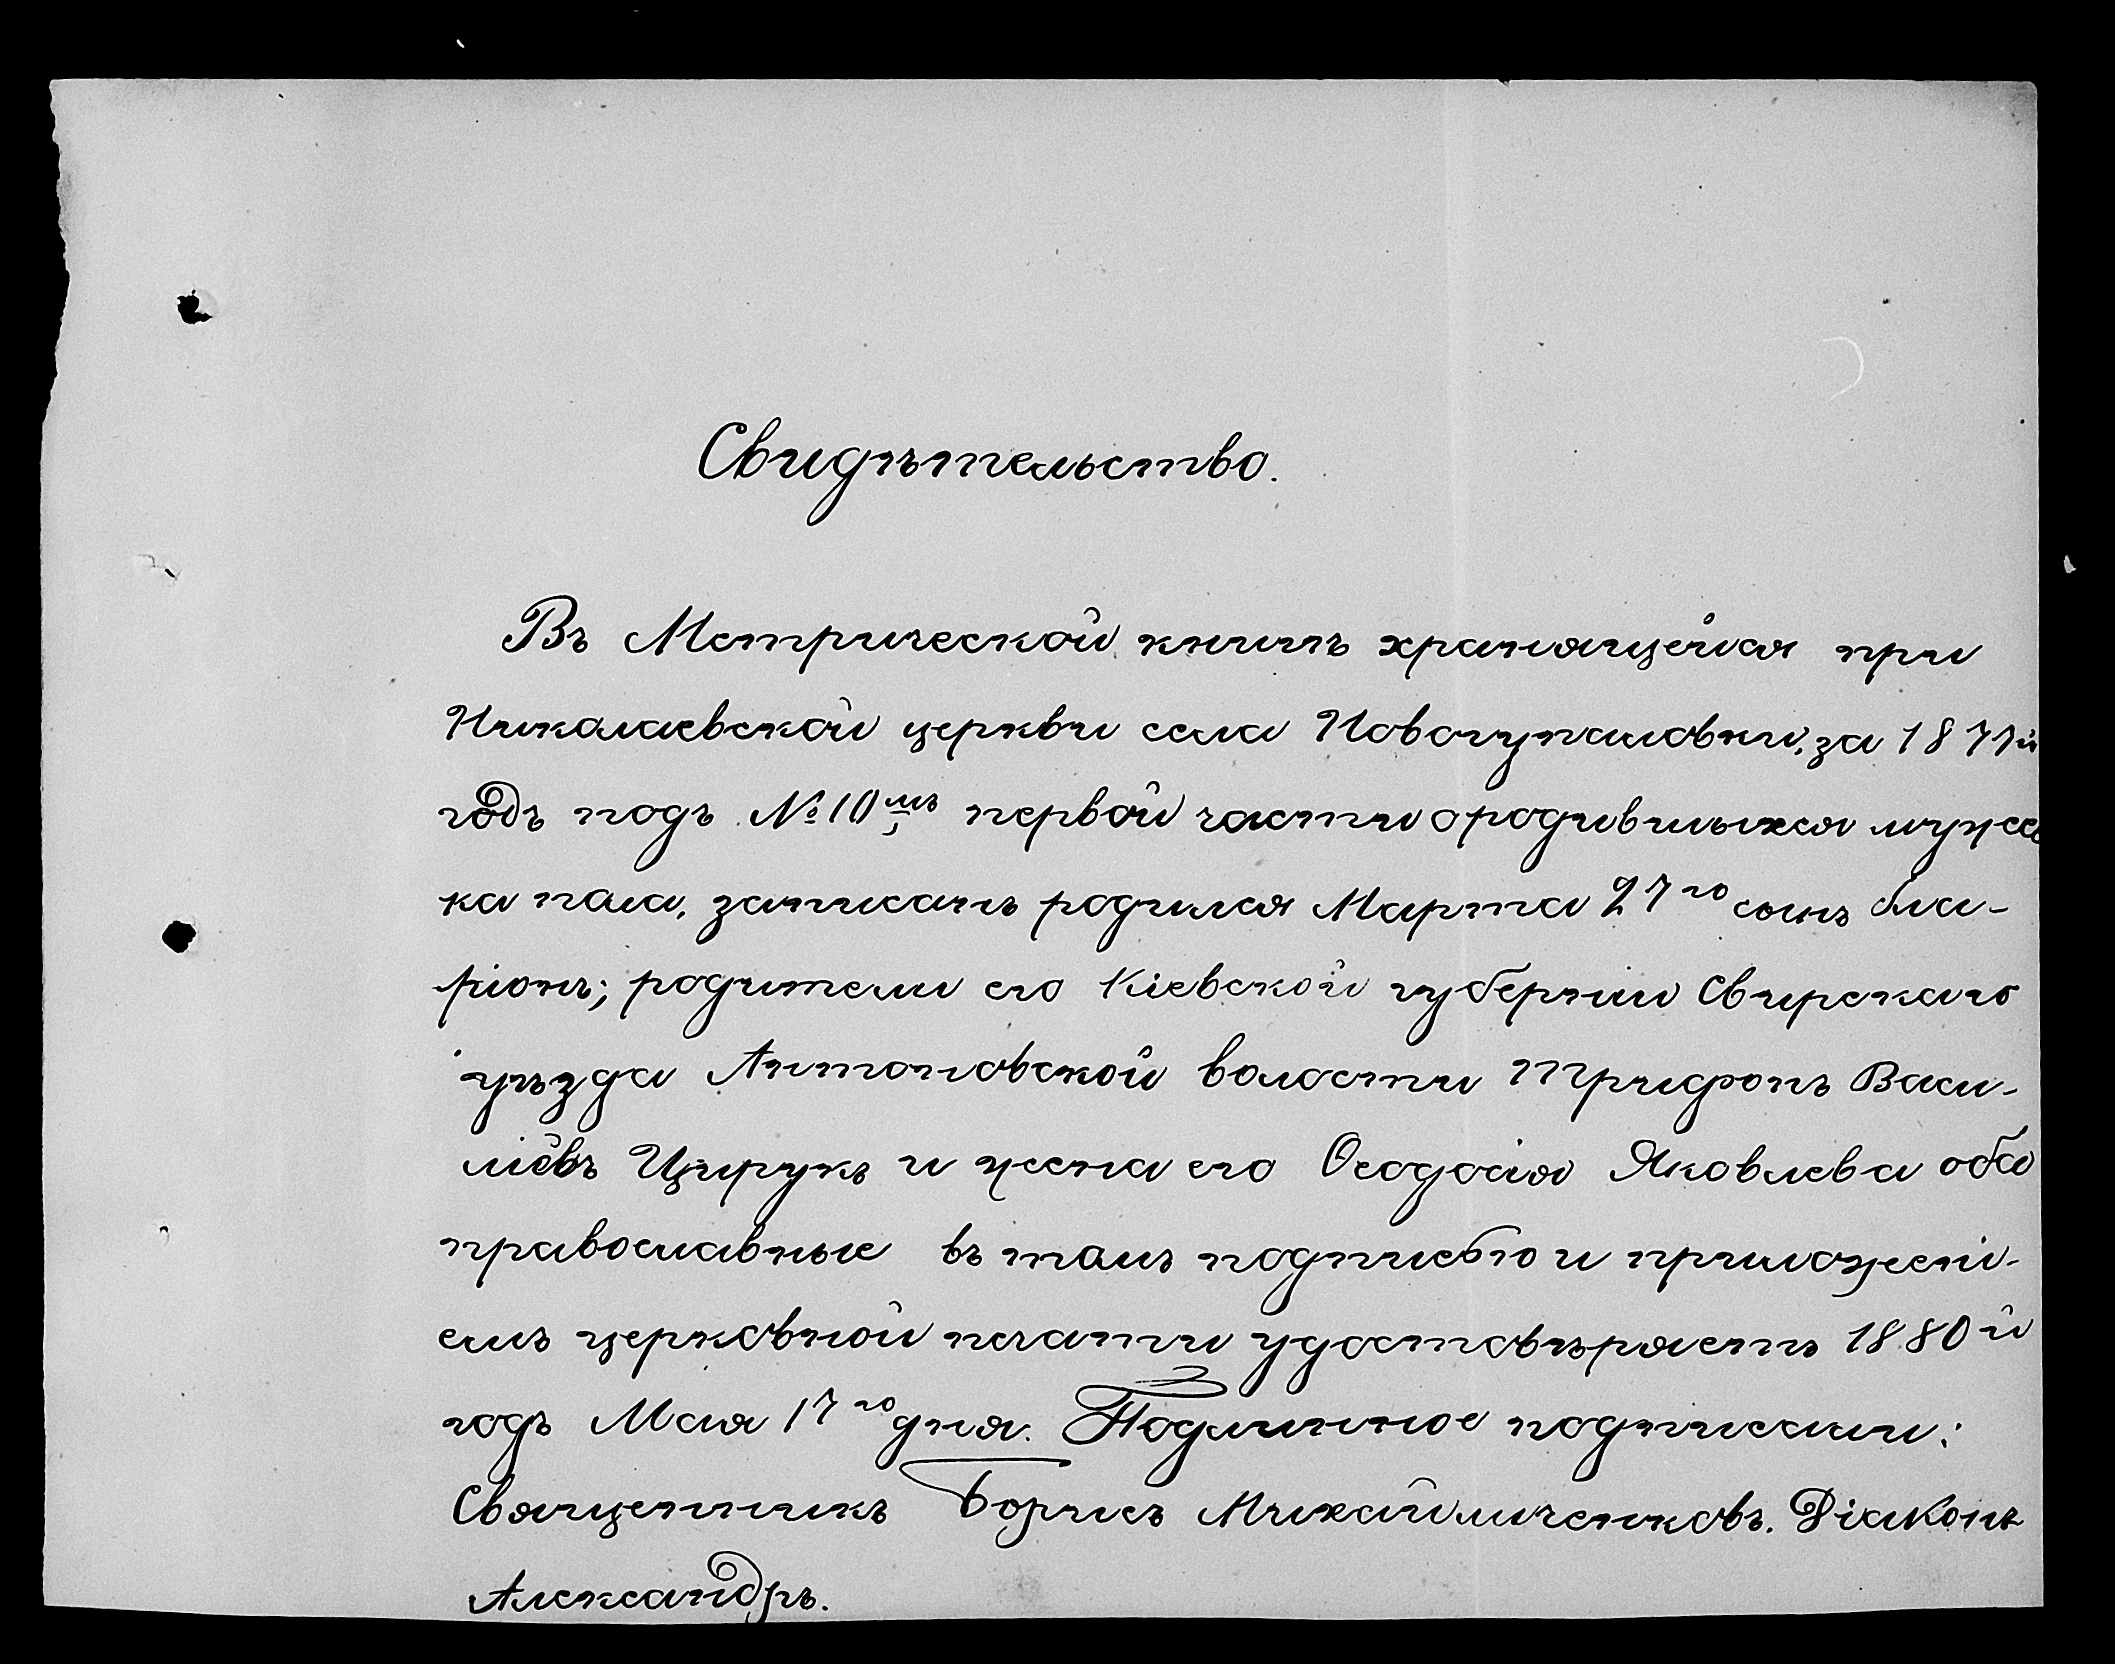 Свидѣтельство.
Въ Метрической книгѣ хранящейся при
Николаевской церкви села Новогупаловки, за 1877й
годъ подъ №10мъ первой части о родившыхся мужес
ка пола, записанъ родился Марта 27го сынъ Ила-
ріонъ; родители его Кіевской губерніи Свирскаго
уѣзда Антоновской волости Трифонъ Васи-
ліевъ Цирукъ и жена его Ѳеодосія Яковлева оба
православные въ томъ подписью и приложені-
емъ церковной печати удостовѣряетъ 1880й
годъ Мая 17го дня. Подлинное подписали:
Священникъ Борисъ Михайличенковъ. Діаконъ
Александръ.